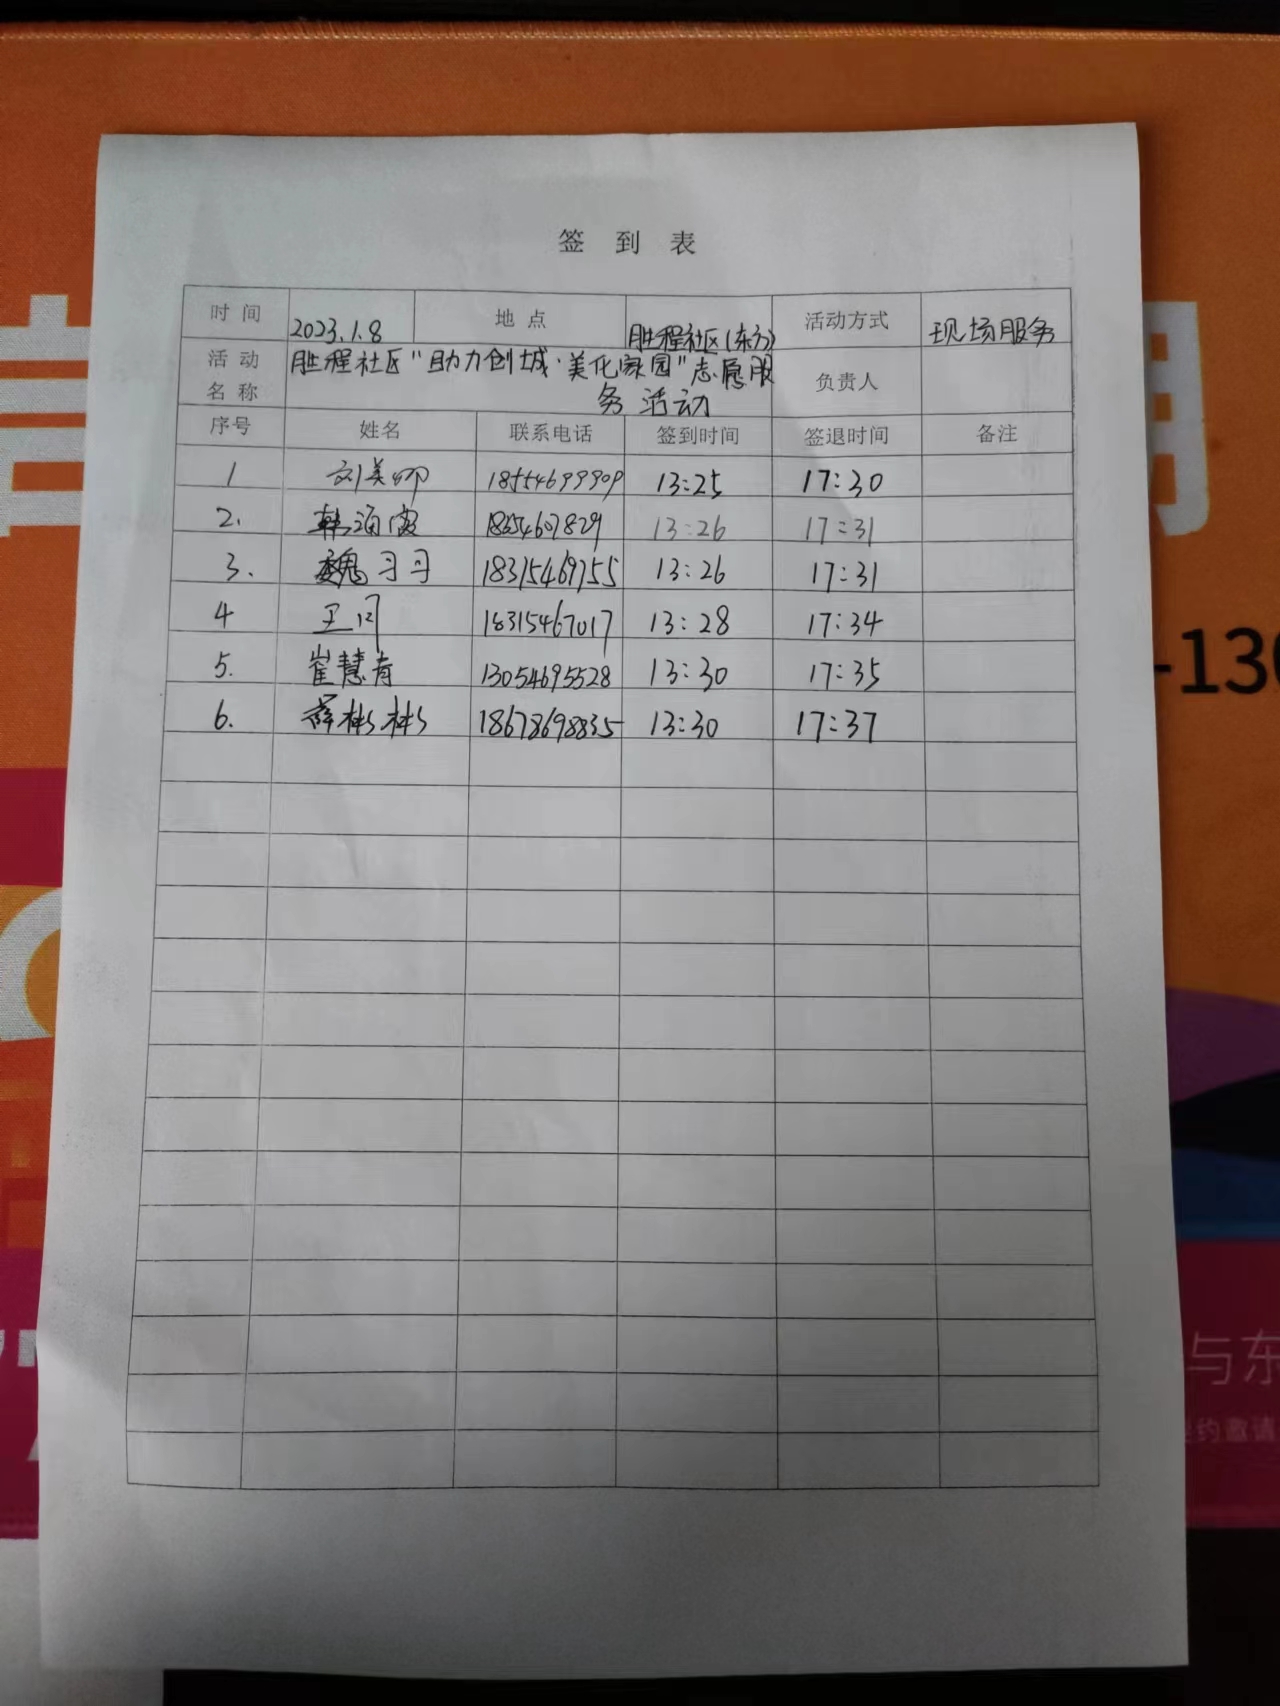 签 到 表
时 间 2023.1.8 地 点 胜程社区(东方) 活动方式 现场服务
活 动 名 称 胜程社区"助力创城·美化家园"志愿服 负责人
务活动
序号 姓名 联系电话 签到时间 签退时间 备注
1 刘美 13:25 17:30
2. 韩海霞 18654607829 13:26 17:31
3. 魏习习 18315469755 13:26 17:31
4 王闪 18315467017 13:28 17:34
5. 崔慧青 13054695528 13:30 17:35
6. 薛彬彬 18678698835 13:30 17:37
-130
与东
约邀请